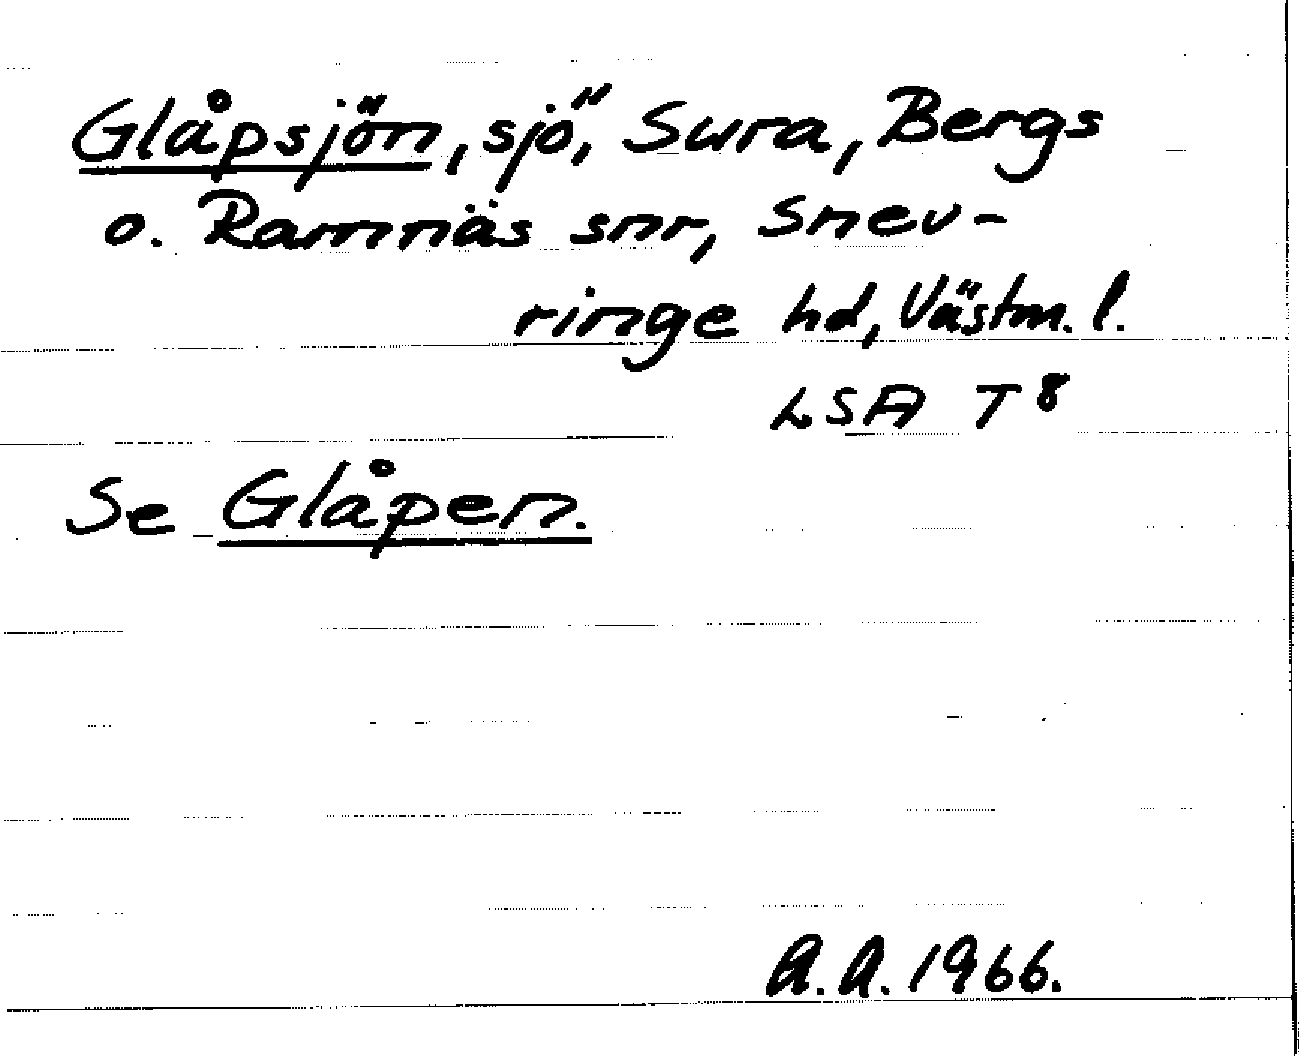 Glåpsjön, sjö, Sura, Bergs
o. Ramnäs snr, Snev-
ringe hd, Västm. l.
LSA T8
Se Glåpen.
A.A. 1966.